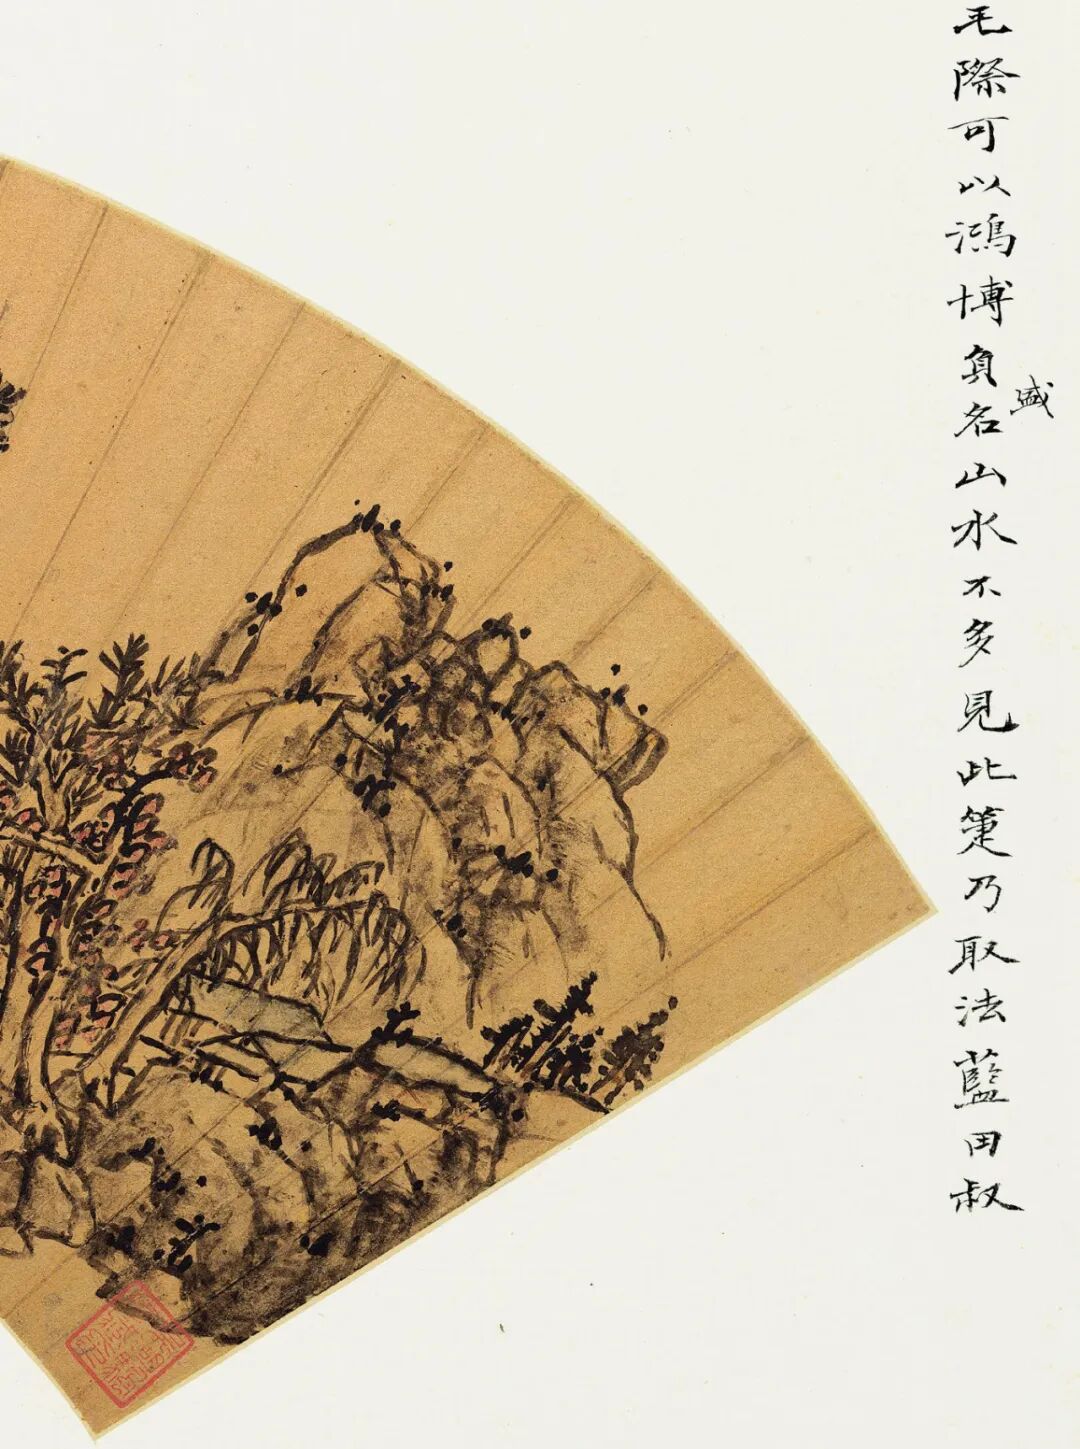 毛際可以鴻博負盛名山水不多見此箑乃取法藍田叔